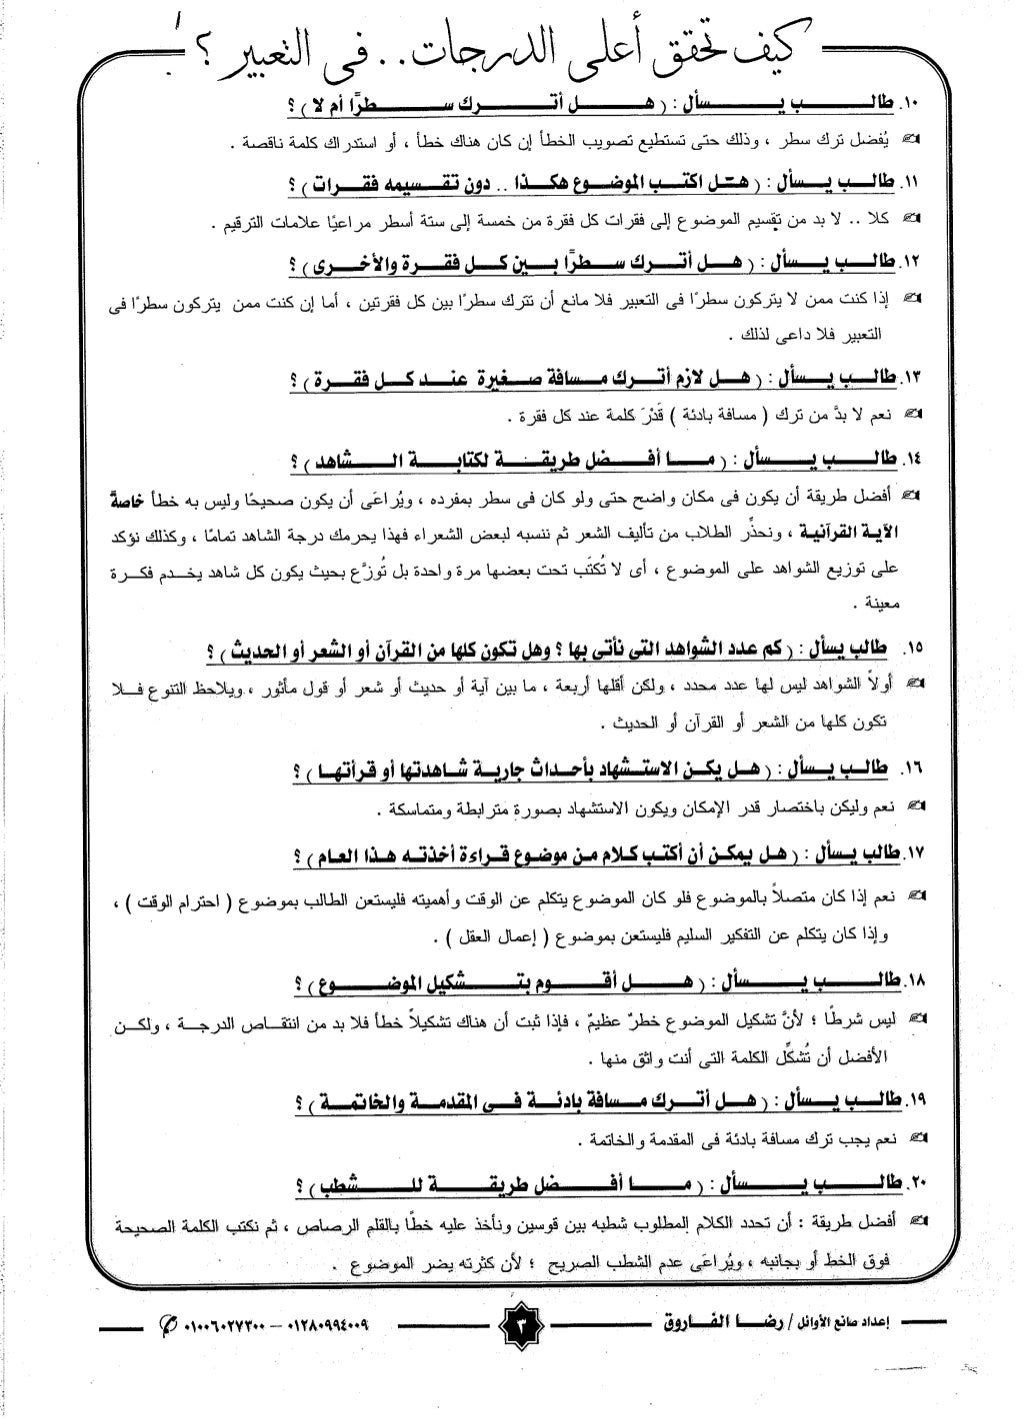 كيف تحقق أعلى الدرجات.. فى التعبير ؟
١٠. طالب يسأل : ( هل أترك سطرًا أم لا ) ؟
يُفضل ترك سطر ، وذلك حتى تستطيع تصويب الخطأ إن كان هناك خطأ ، أو استدراك كلمة ناقصة .
١١. طالب يسأل : ( هل اكتب الموضوع هكذا .. دون تقسيمه فقرات ) ؟
كلا .. لا بد من تقسيم الموضوع إلى فقرات كل فقرة من خمسة إلى ستة أسطر مراعيًا علامات الترقيم .
١٢. طالب يسأل : ( هل أترك سطرًا بين كل فقرة والأخرى ) ؟
إذا كنت ممن لا يتركون سطرًا فى التعبير فلا مانع أن تترك سطرًا بين كل فقرتين ، أما إن كنت ممن يتركون سطرًا فى
التعبير فلا داعى لذلك .
١٣. طالب يسأل : ( هل لازم أترك مسافة صغيرة عند كل فقرة ) ؟
نعم لا بدَّ من ترك ( مسافة بادئة ) قَدْرَ كلمة عند كل فقرة .
١٤. طالب يسأل : ( ما أفضل طريقة لكتابة الشاهد ) ؟
أفضل طريقة أن يكون فى مكان واضح حتى ولو كان فى سطر بمفرده ، ويُراعَى أن يكون صحيحًا وليس به خطأ خاصةً
الآية القرآنية ، ونحذِّر الطلاب من تأليف الشعر ثم ننسبه لبعض الشعراء فهذا يحرمك درجة الشاهد تمامًا ، وكذلك نؤكد
على توزيع الشواهد على الموضوع ، أى لا تُكتَب تحت بعضها مرة واحدة بل تُوزَّع بحيث يكون كل شاهد يخدم فكرة
معينة .
١٥. طالب يسأل : ( كم عدد الشواهد التى نأتى بها ؟ وهل تكون كلها من القرآن أو الشعر أو الحديث ) ؟
أولاً الشواهد ليس لها عدد محدد ، ولكن أقلها أربعة ، ما بين آية أو حديث أو شعر أو قول مأثور ، ويلاحظ التنوع فلا
تكون كلها من الشعر أو القرآن أو الحديث .
١٦. طالب يسأل : ( هل يكن الاستشهاد بأحداث جارية شاهدتها أو قرأتها ) ؟
نعم وليكن باختصار قدر الإمكان ويكون الاستشهاد بصورة مترابطة ومتماسكة .
١٧. طالب يسأل : ( هل يمكن أن أكتب كلام من موضوع قراءة أخذته هذا العام ) ؟
نعم إذا كان متصلاً بالموضوع فلو كان الموضوع يتكلم عن الوقت وأهميته فليستعن الطالب بموضوع ( احترام الوقت ) ،
وإذا كان يتكلم عن التفكير السليم فليستعن بموضوع ( إعمال العقل ) .
١٨. طالب يسأل : ( هل أقوم بتشكيل الموضوع ) ؟
ليس شرطًا ؛ لأنَّ تشكيل الموضوع خطرٌ عظيمٌ ، فإذا ثبت أن هناك تشكيلاً خطأ فلا بد من انتقاص الدرجة ، ولكن
الأفضل أن تُشكِّل الكلمة التى أنت واثق منها .
١٩. طالب يسأل : ( هل أترك مسافة بادئة فى المقدمة والخاتمة ) ؟
نعم يجب ترك مسافة بادئة فى المقدمة والخاتمة .
٢٠. طالب يسأل : ( ما أفضل طريقة للشطب ) ؟
أفضل طريقة : أن تحدد الكلام المطلوب شطبه بين قوسين ونأخذ عليه خطًا بالقلم الرصاص ، ثم نكتب الكلمة الصحيحة
فوق الخط أو بجانبه ، ويُراعَى عدم الشطب الصريح ؛ لأن كثرته يضر الموضوع .
إعداد صانع الأوائل / رضا الفاروق
٣
٠١٢٨٠٩٩٤٠٠٩ – ٠١٠٠٦٠٢٧٣٠٠